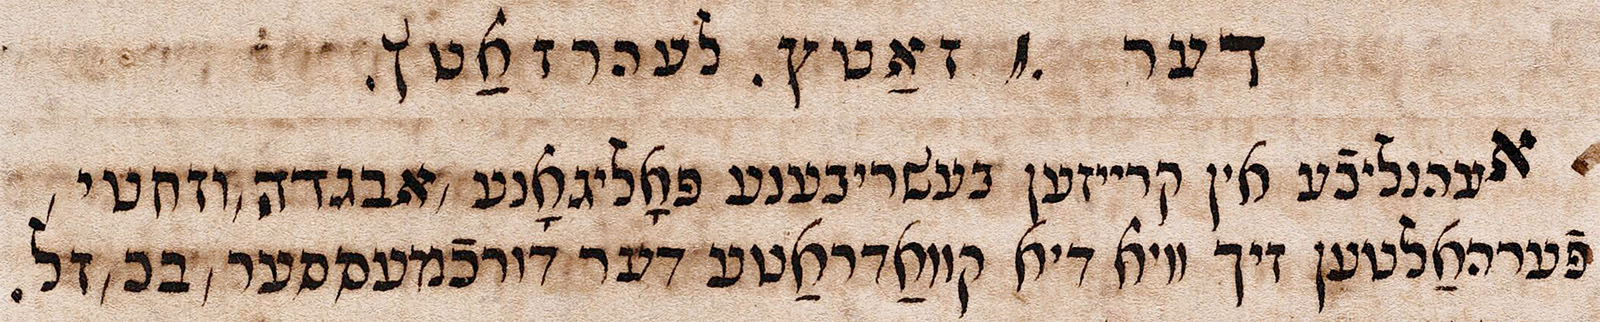 דער .1 זאַטץ. לעהרזאַטץ.
אעהנליכֿע אין קרייזען בעשריבענע פּאָליגאָנע, אבגדה, וזחטי,
פֿערהאַלטען זיך וויא דיא קוואַדראַטע דער דורכֿמעססער, בכ, זל.